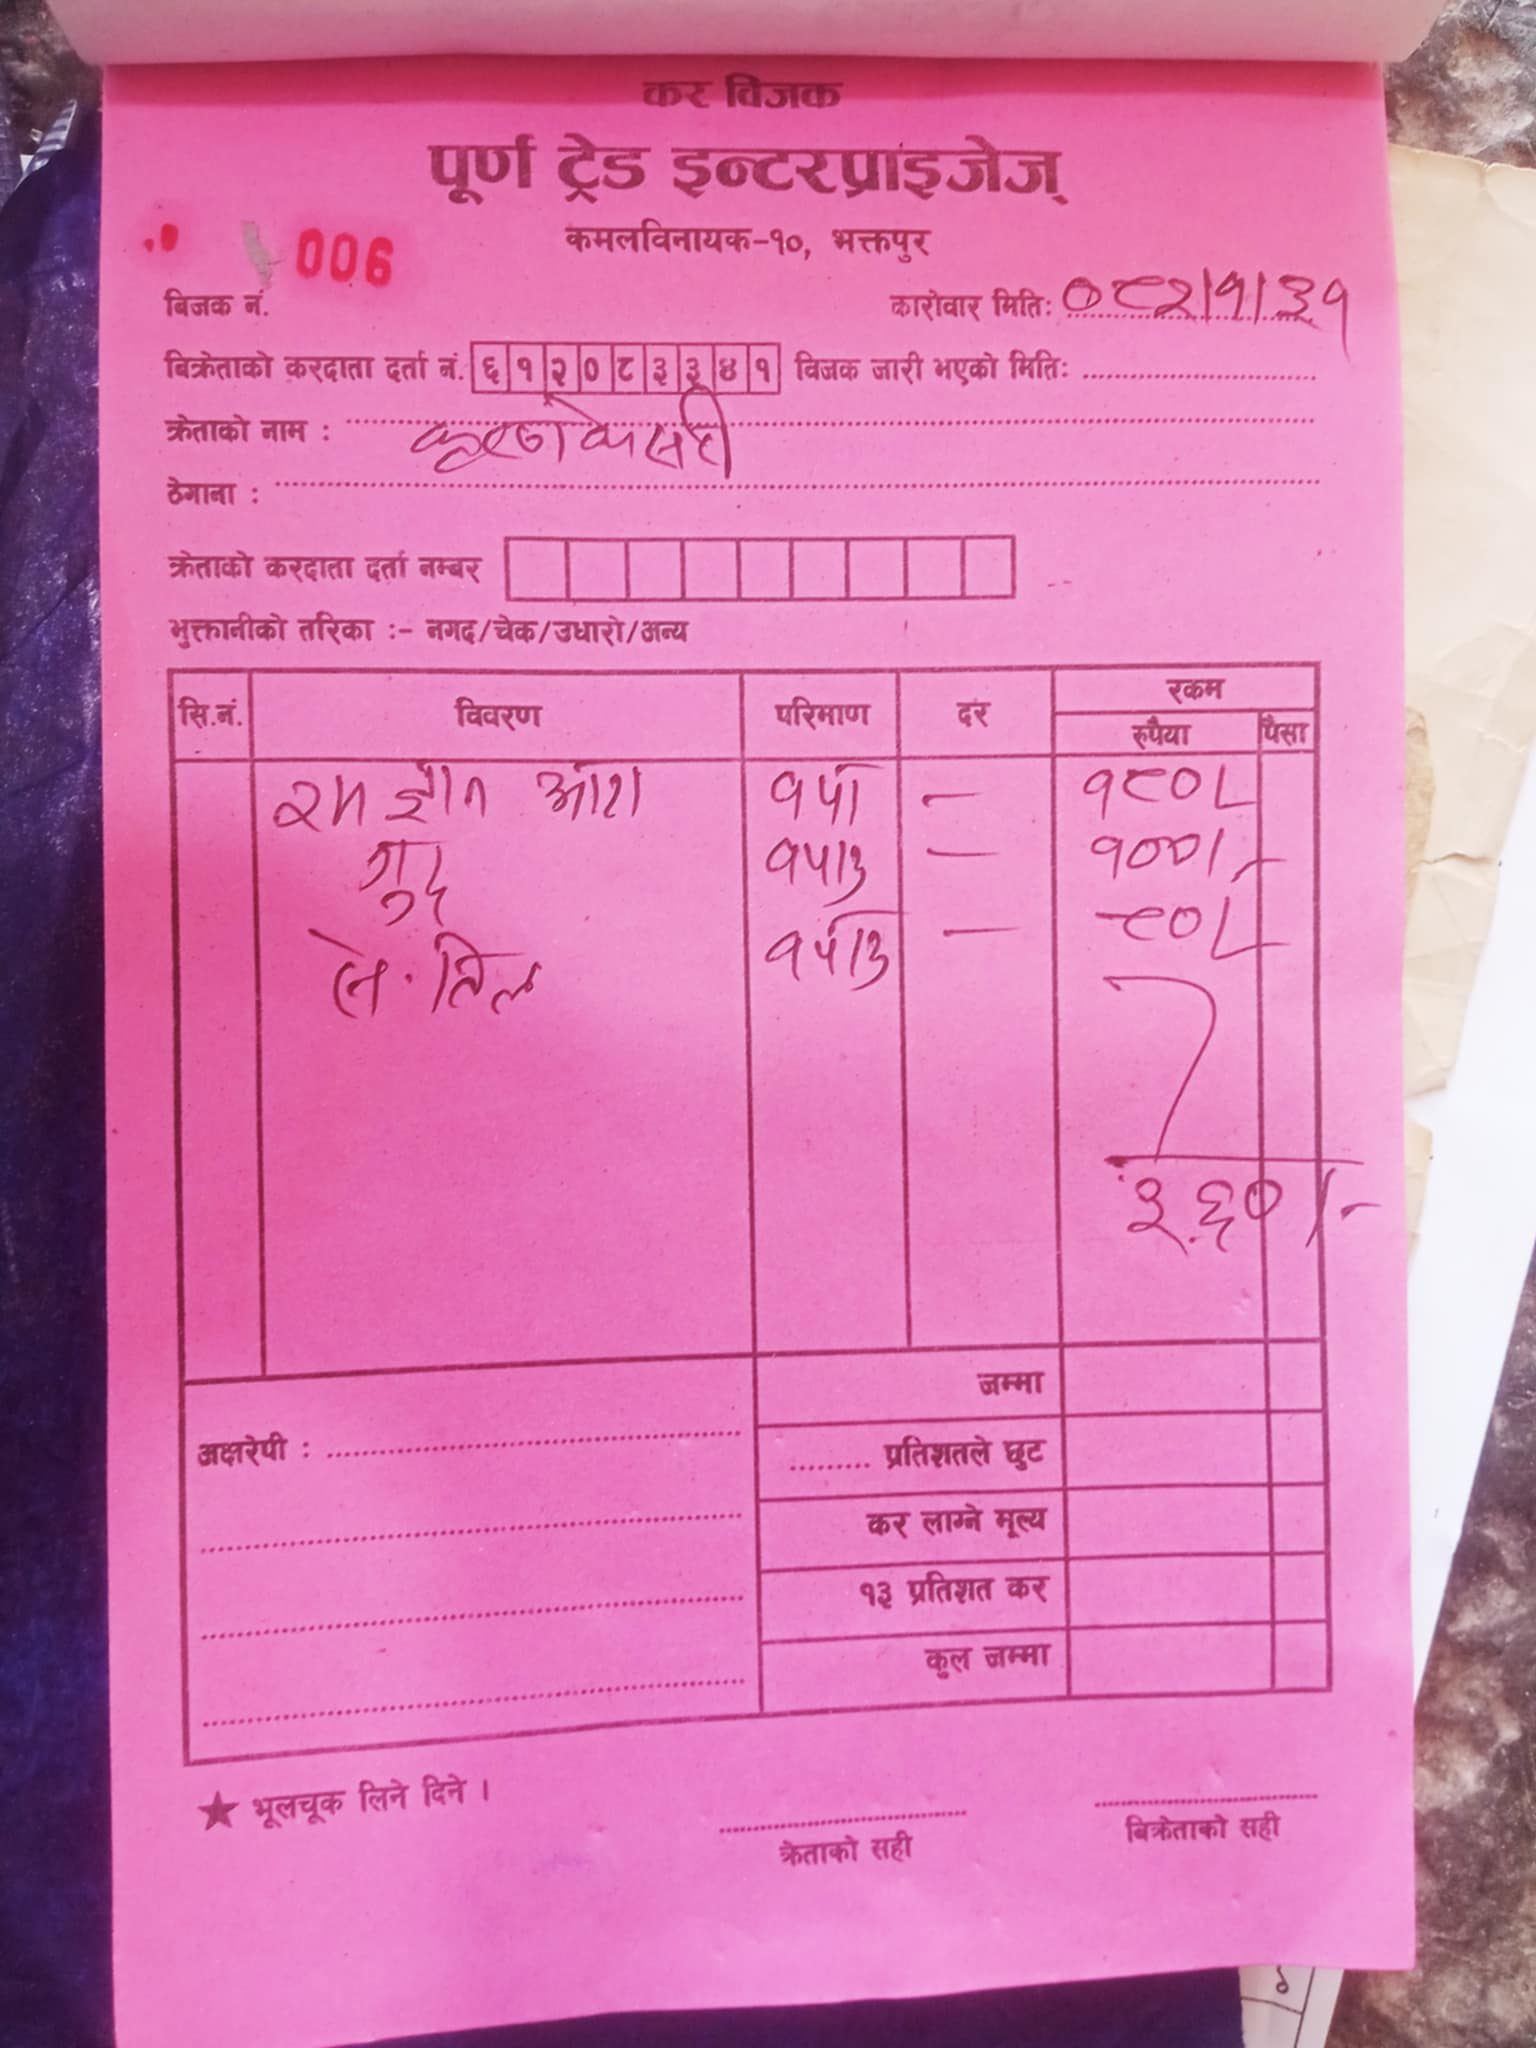 कर विजक
पूर्ण ट्रेड इन्टरप्राइजेज्
कमलविनायक-१०, भक्तपुर
006
बिजक नं.
कारोवार मितिः ०८२।१।३१
बिक्रेताको करदाता दर्ता नं. ६१२०८३३४१ विजक जारी भएको मितिः
क्रेताको नाम :
ठेगाना :
क्रेताको करदाता दर्ता नम्बर
भुक्तानीको तरिका :- नगद/चेक/उधारो/अन्य
सि.नं. विवरण परिमाण दर रकम
रुपैया पैसा
आटा — १८०/-
गुद — १००/-
से. तिल — ८०/-
३६०/-
जम्मा
अक्षरेपी :
......... प्रतिशतले छुट
कर लाग्ने मूल्य
१३ प्रतिशत कर
कुल जम्मा
★ भूलचूक लिने दिने ।
क्रेताको सही
बिक्रेताको सही